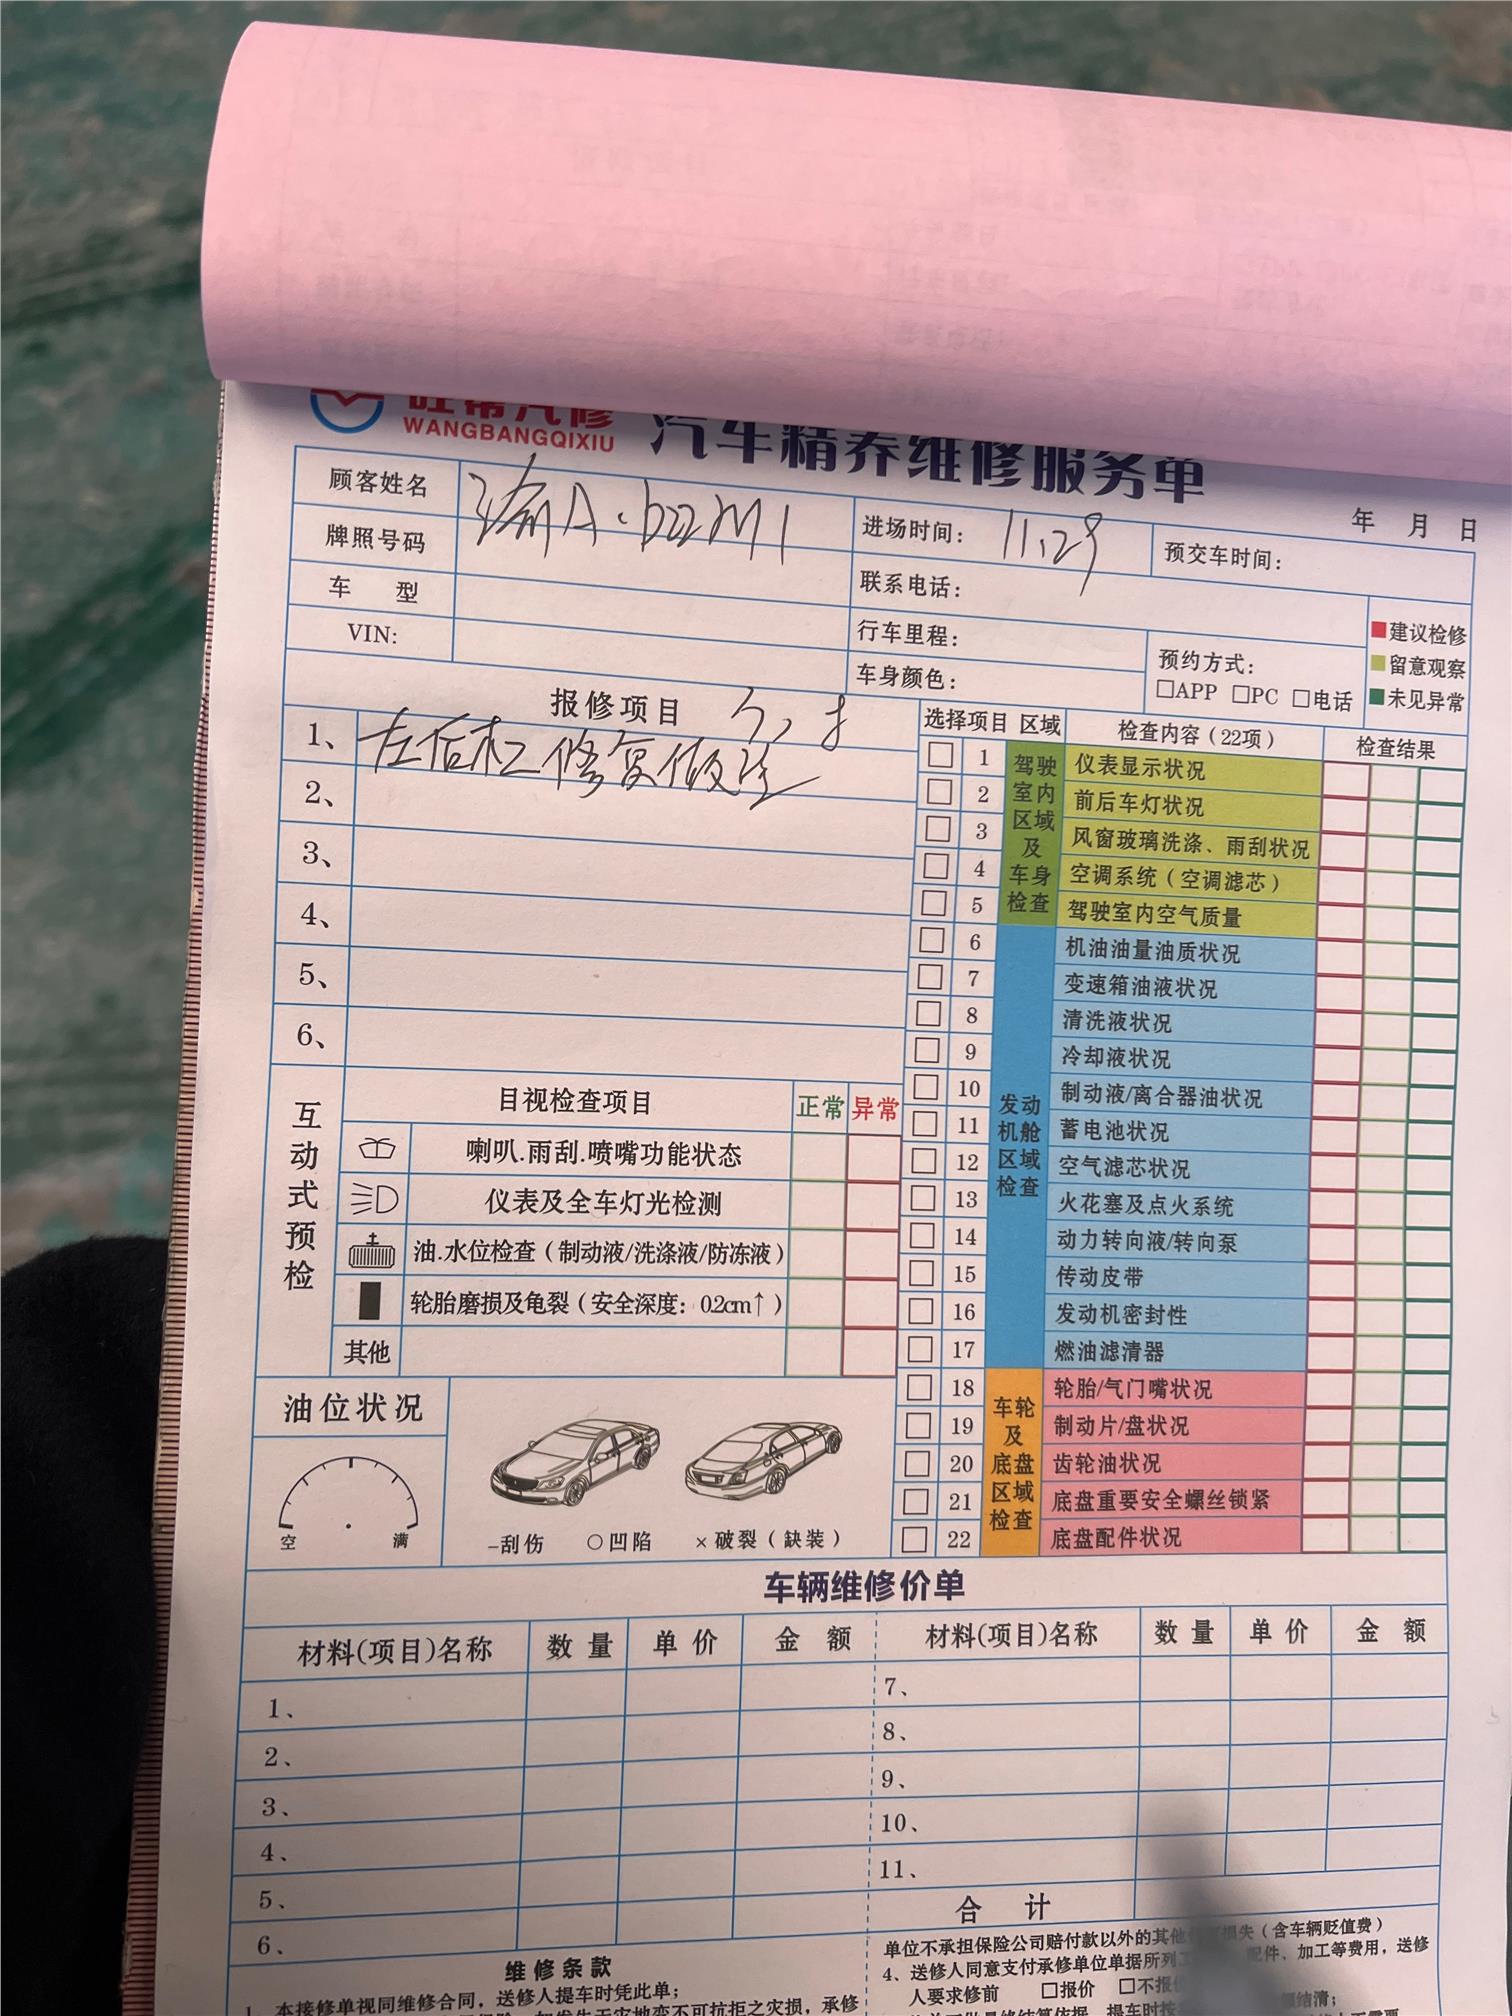 旺帮汽修
WANGBANGQIXIU
汽车精养维修服务单
年 月 日
顾客姓名
牌照号码
进场时间: 11.29
预交车时间:
联系电话:
车 型
VIN:
行车里程:
车身颜色:
预约方式:
□APP □PC □电话
建议检修
留意观察
未见异常
报修项目
1、左后杠修复做漆
2、
3、
4、
5、
6、
选择项目 区域 检查内容(22项) 检查结果
驾驶室内区域及车身检查
1 仪表显示状况
2 前后车灯状况
3 风窗玻璃洗涤、雨刮状况
4 空调系统(空调滤芯)
5 驾驶室内空气质量
发动机舱区域检查
6 机油油量油质状况
7 变速箱油液状况
8 清洗液状况
9 冷却液状况
10 制动液/离合器油状况
11 蓄电池状况
12 空气滤芯状况
13 火花塞及点火系统
14 动力转向液/转向泵
15 传动皮带
16 发动机密封性
17 燃油滤清器
车轮及底盘区域检查
18 轮胎/气门嘴状况
19 制动片/盘状况
20 齿轮油状况
21 底盘重要安全螺丝锁紧
22 底盘配件状况
互动式预检
目视检查项目 正常 异常
喇叭.雨刮.喷嘴功能状态
仪表及全车灯光检测
油.水位检查(制动液/洗涤液/防冻液)
轮胎磨损及龟裂(安全深度: 0.2cm↑)
其他
油位状况
空 满
–刮伤 ○凹陷 ×破裂(缺装)
车辆维修价单
材料(项目)名称 数量 单价 金 额 材料(项目)名称 数量 单价 金 额
1、 7、
2、 8、
3、 9、
4、 10、
5、 11、
6、 合 计
维修条款
本接修单视同维修合同,送修人提车时凭此单;
单位不承担保险公司赔付款以外的其他 损失(含车辆贬值费)
4、送修人同意支付承修单位单据所列 配件、加工等费用,送修
人要求修前 □报价 □不报